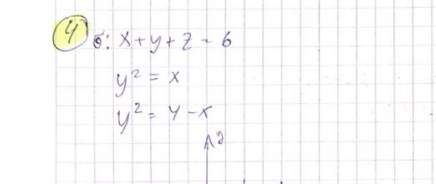 4 б: x+y+z = 6
y² = x
y² = 4 - x